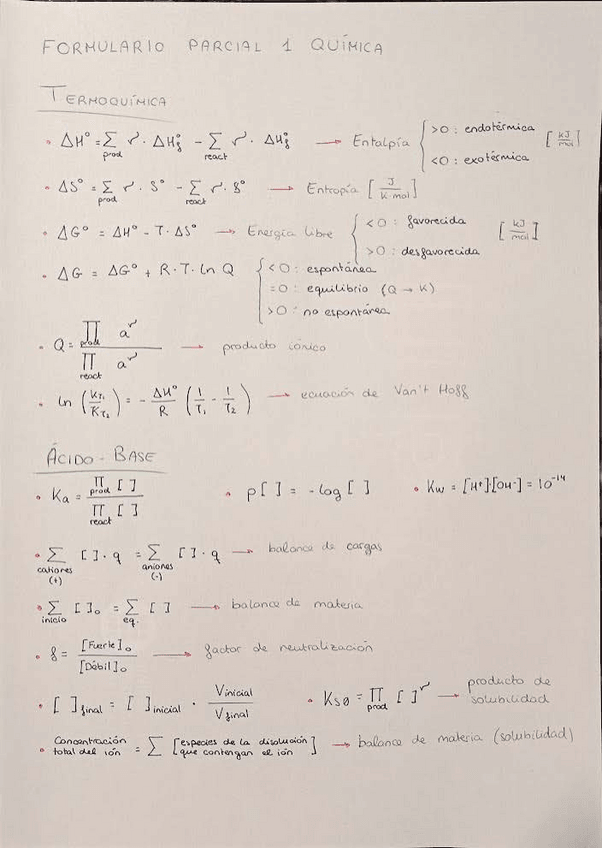 FORMULARIO PARCIAL 1 QUÍMICA
TERMOQUÍMICA
• ΔH° = Σ prod ν · ΔH°f − Σ react ν · ΔH°f → Entalpía { >0 : endotérmica [kJ/mol]
<0 : exotérmica
• ΔS° = Σ prod ν · S° − Σ react ν · S° → Entropía [J/K·mol]
• ΔG° = ΔH° − T · ΔS° → Energía libre { <0 : favorecida [kJ/mol]
>0 : desfavorecida
• ΔG = ΔG° + R · T · ln Q { <0 : espontánea
=0 : equilibrio (Q → K)
>0 : no espontánea
• Q = ∏ prod a^ν / ∏ react a^ν → producto iónico
• ln (K_T1 / K_T2) = − ΔH°/R (1/T1 − 1/T2) → ecuación de Van't Hoff
ÁCIDO - BASE
• Ka = ∏ prod [ ] / ∏ react [ ] • p[ ] = -log [ ] • Kw = [H+]·[OH-] = 10^-14
• Σ cationes (+) [ ] · q = Σ aniones (-) [ ] · q → balance de cargas
• Σ inicio [ ]o = Σ eq. [ ] → balance de materia
• f = [Fuerte]o / [Débil]o → factor de neutralización
• [ ] final = [ ] inicial · V inicial / V final • Ksø = ∏ prod [ ]^ν → producto de solubilidad
• Concentración total del ión = Σ [especies de la disolución que contengan el ión] → balance de materia (solubilidad)